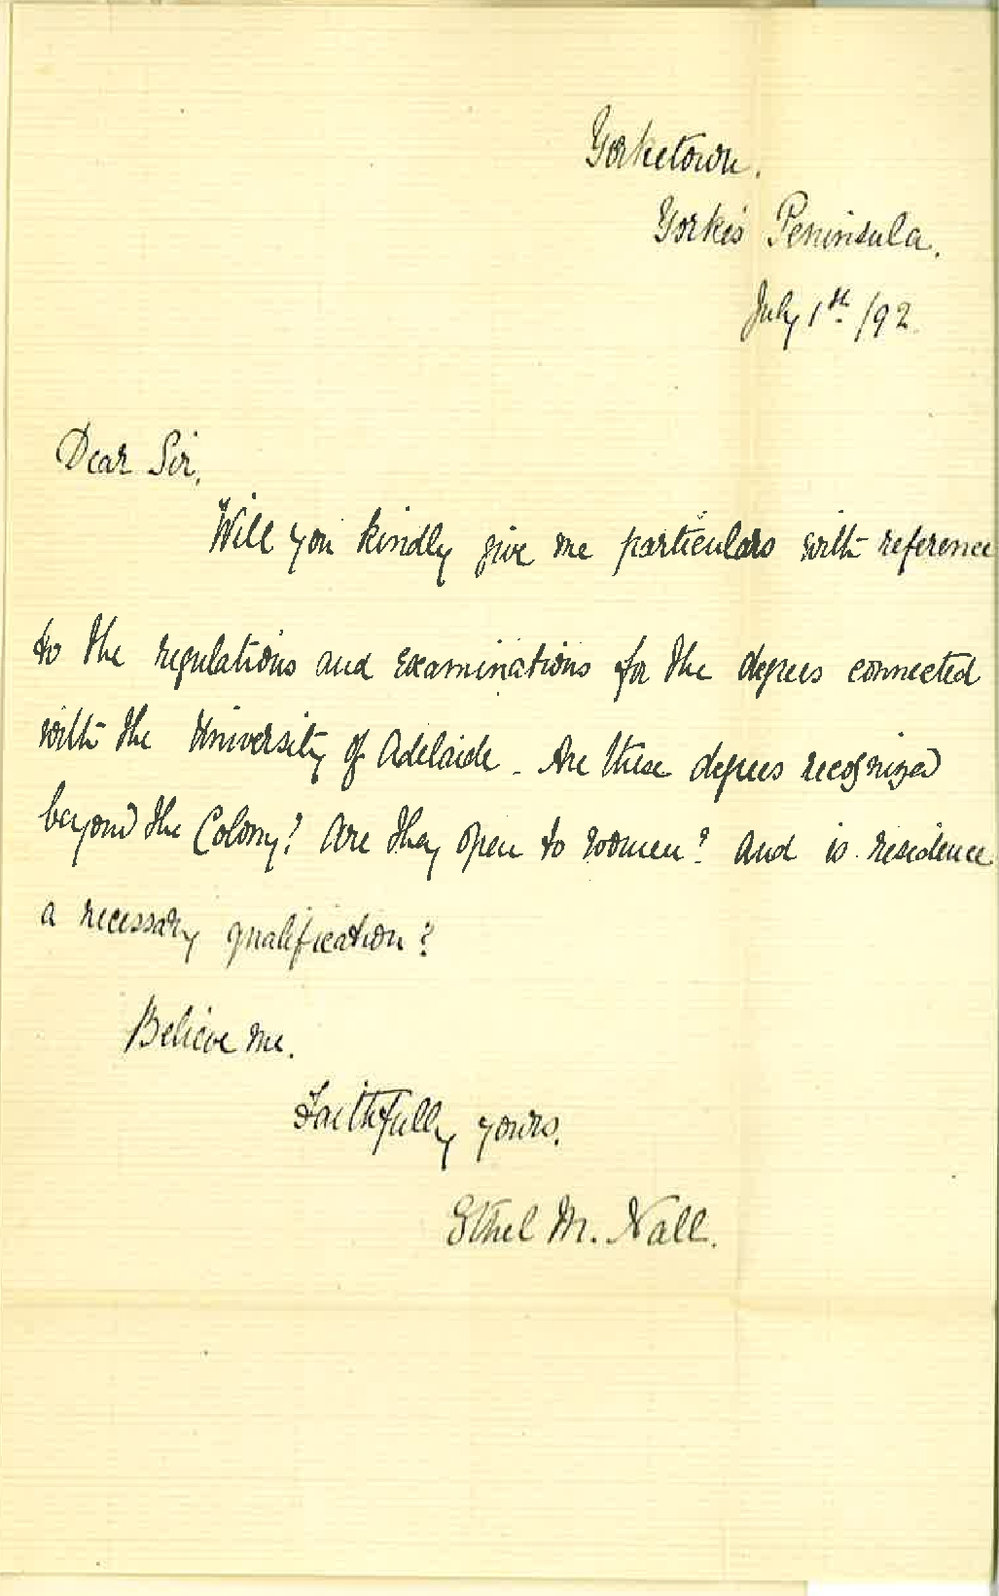 Yorketown.
Yorke's Peninsula.
July 1st /92
Dear Sir,
Will you kindly give me particulars with reference
to the regulations and examinations for the degrees connected
with the University of Adelaide. Are these degrees recognized
beyond the Colony? Are they open to women? And is residence
a necessary qualification?
Believe me.
Faithfully yours.
Ethel M. Nall.